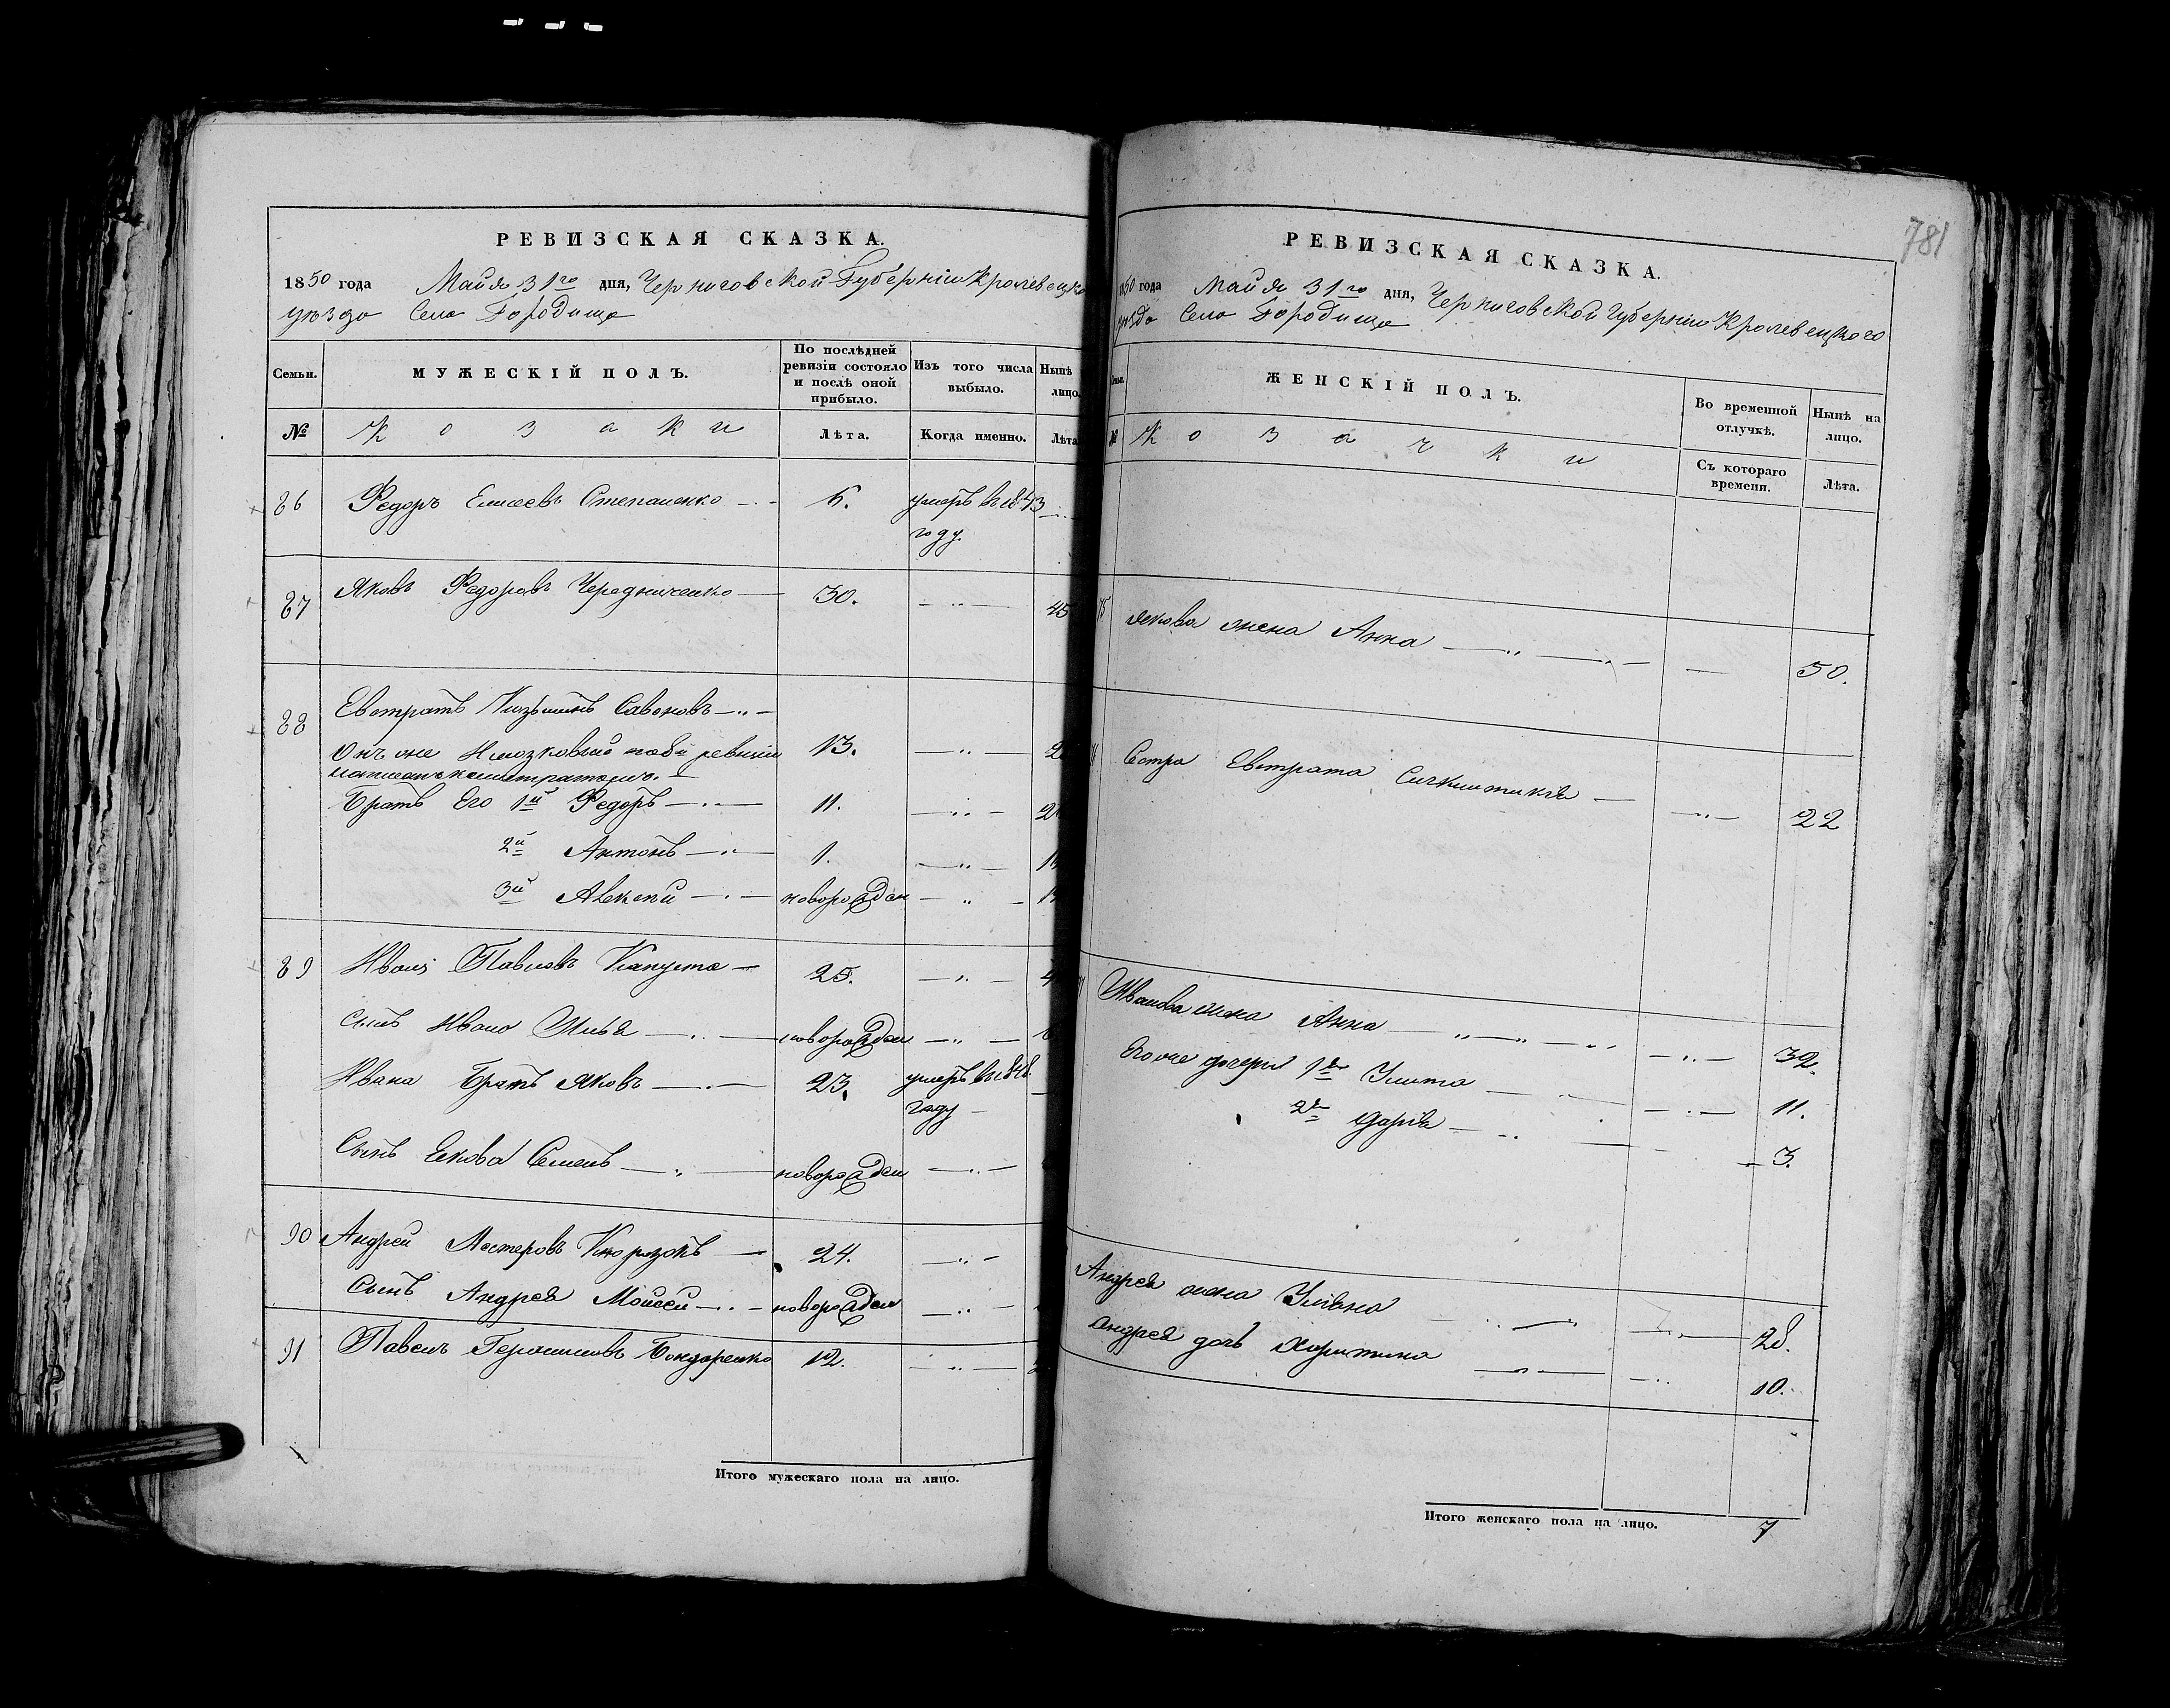 РЕВИЗСКАЯ СКАЗКА.
1850 года Майя 31го дня, Черниговской Губерніи Кролевецко
уѣзда Села Городища
Семьи.
МУЖЕСКІЙ ПОЛЪ.
По послѣдней ревизіи состояло и послѣ оной прибыло.
Изъ того числа выбыло.
Нынѣ лицо.
№
Козаки
Лѣта.
Когда именно.
Лѣта
86 Федоръ Елисеевъ Степаненко 6. умеръ въ 1843
году.
87 Яковъ Федоровъ Чередниченко 30. 45
88 Евстратъ Козьминъ Савоновъ
Онъ же по 8й ревизіи 13.
Братъ Его 1й Федоръ 11.
2й Антонъ 1.
3й Алексей новорожден
89 Иванъ Павловъ Капуста 25.
Сынъ Ивана Илья новорожден
Ивана Братъ Яковъ 23. умеръ въ 1848.
году
Сынъ Якова Семенъ новорожден
90 Андрей Нестеровъ 24.
Сынъ Андрея Мойсей новорожден
91 Павелъ Герасимовъ Бондаренко 12.
Итого мужескаго пола на лицо.
781
РЕВИЗСКАЯ СКАЗКА.
1850 года Майя 31го дня, Черниговской Губерніи Кролевецкого
уѣзда Села Городища
ЖЕНСКІЙ ПОЛЪ.
Во временной отлучкѣ.
Нынѣ на лицо.
№
Козачки
Съ котораго времени.
Лѣта.
Якова жена Анна 50.
Сестра Евстрата 22
Иванова жена Анна 32.
Его же дочери 1я Улита 11.
2я Дарія 3.
Андрея жена Уліяна 28.
Андрея дочь Харитина 10.
Итого женскаго пола на лицо. 7